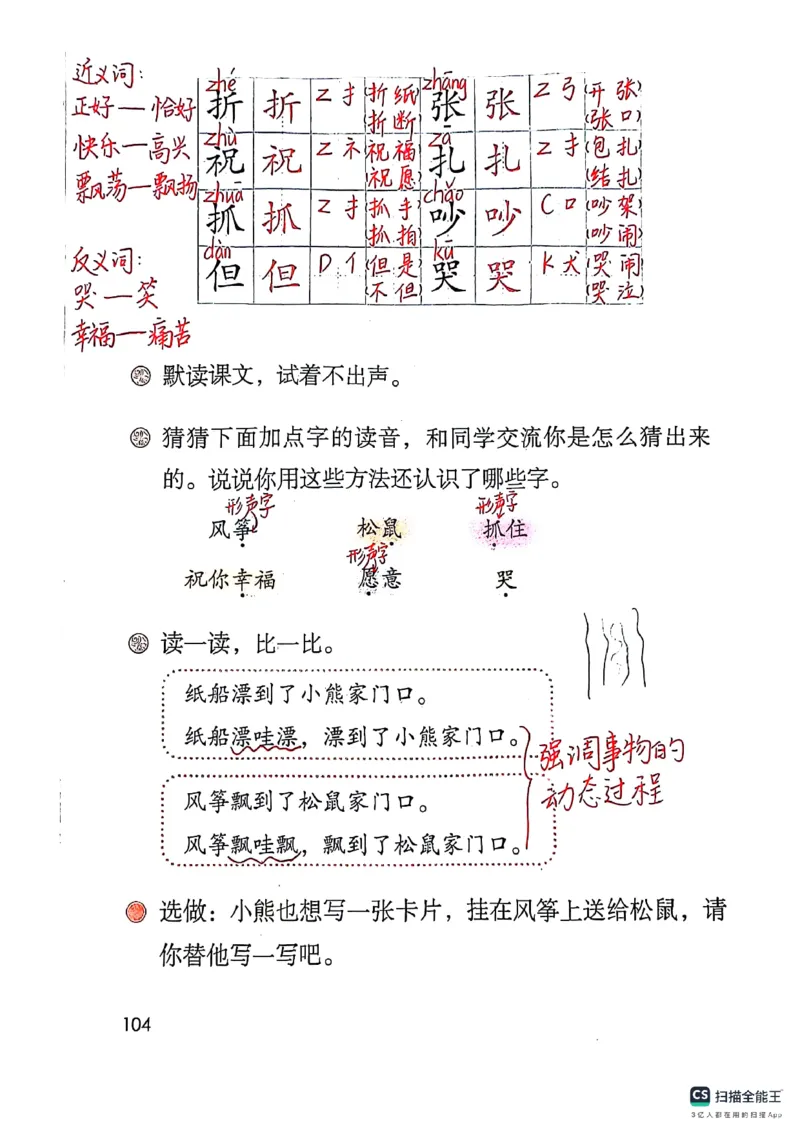 近义词:
正好—恰好
快乐—高兴
飘荡—飘扬
反义词:
哭—笑
幸福—痛苦
zhé zhāng
折 折 Z 扌 (折纸) 张 张 Z 弓 (开张)
(折断) (张口)
zhù zā
祝 祝 Z 礻 (祝福) 扎 扎 Z 扌 (包扎)
(祝愿) (结扎)
zhuā chǎo
抓 抓 Z 扌 (抓手) 吵 吵 C 口 (吵架)
(抓拍) (吵闹)
dàn kū
但 但 D 亻 (但是) 哭 哭 K 犬 (哭闹)
(不但) (哭泣)
默读课文，试着不出声。
猜猜下面加点字的读音，和同学交流你是怎么猜出来
的。说说你用这些方法还认识了哪些字。
形声字 形声字
风筝 松鼠 抓住
形声字
祝你幸福 愿意 哭
读一读，比一比。
纸船漂到了小熊家门口。
纸船漂哇漂，漂到了小熊家门口。
风筝飘到了松鼠家门口。
风筝飘哇飘，飘到了松鼠家门口。
强调事物的
动态过程
选做：小熊也想写一张卡片，挂在风筝上送给松鼠，请
你替他写一写吧。
104
CS 扫描全能王
3亿人都在用的扫描App